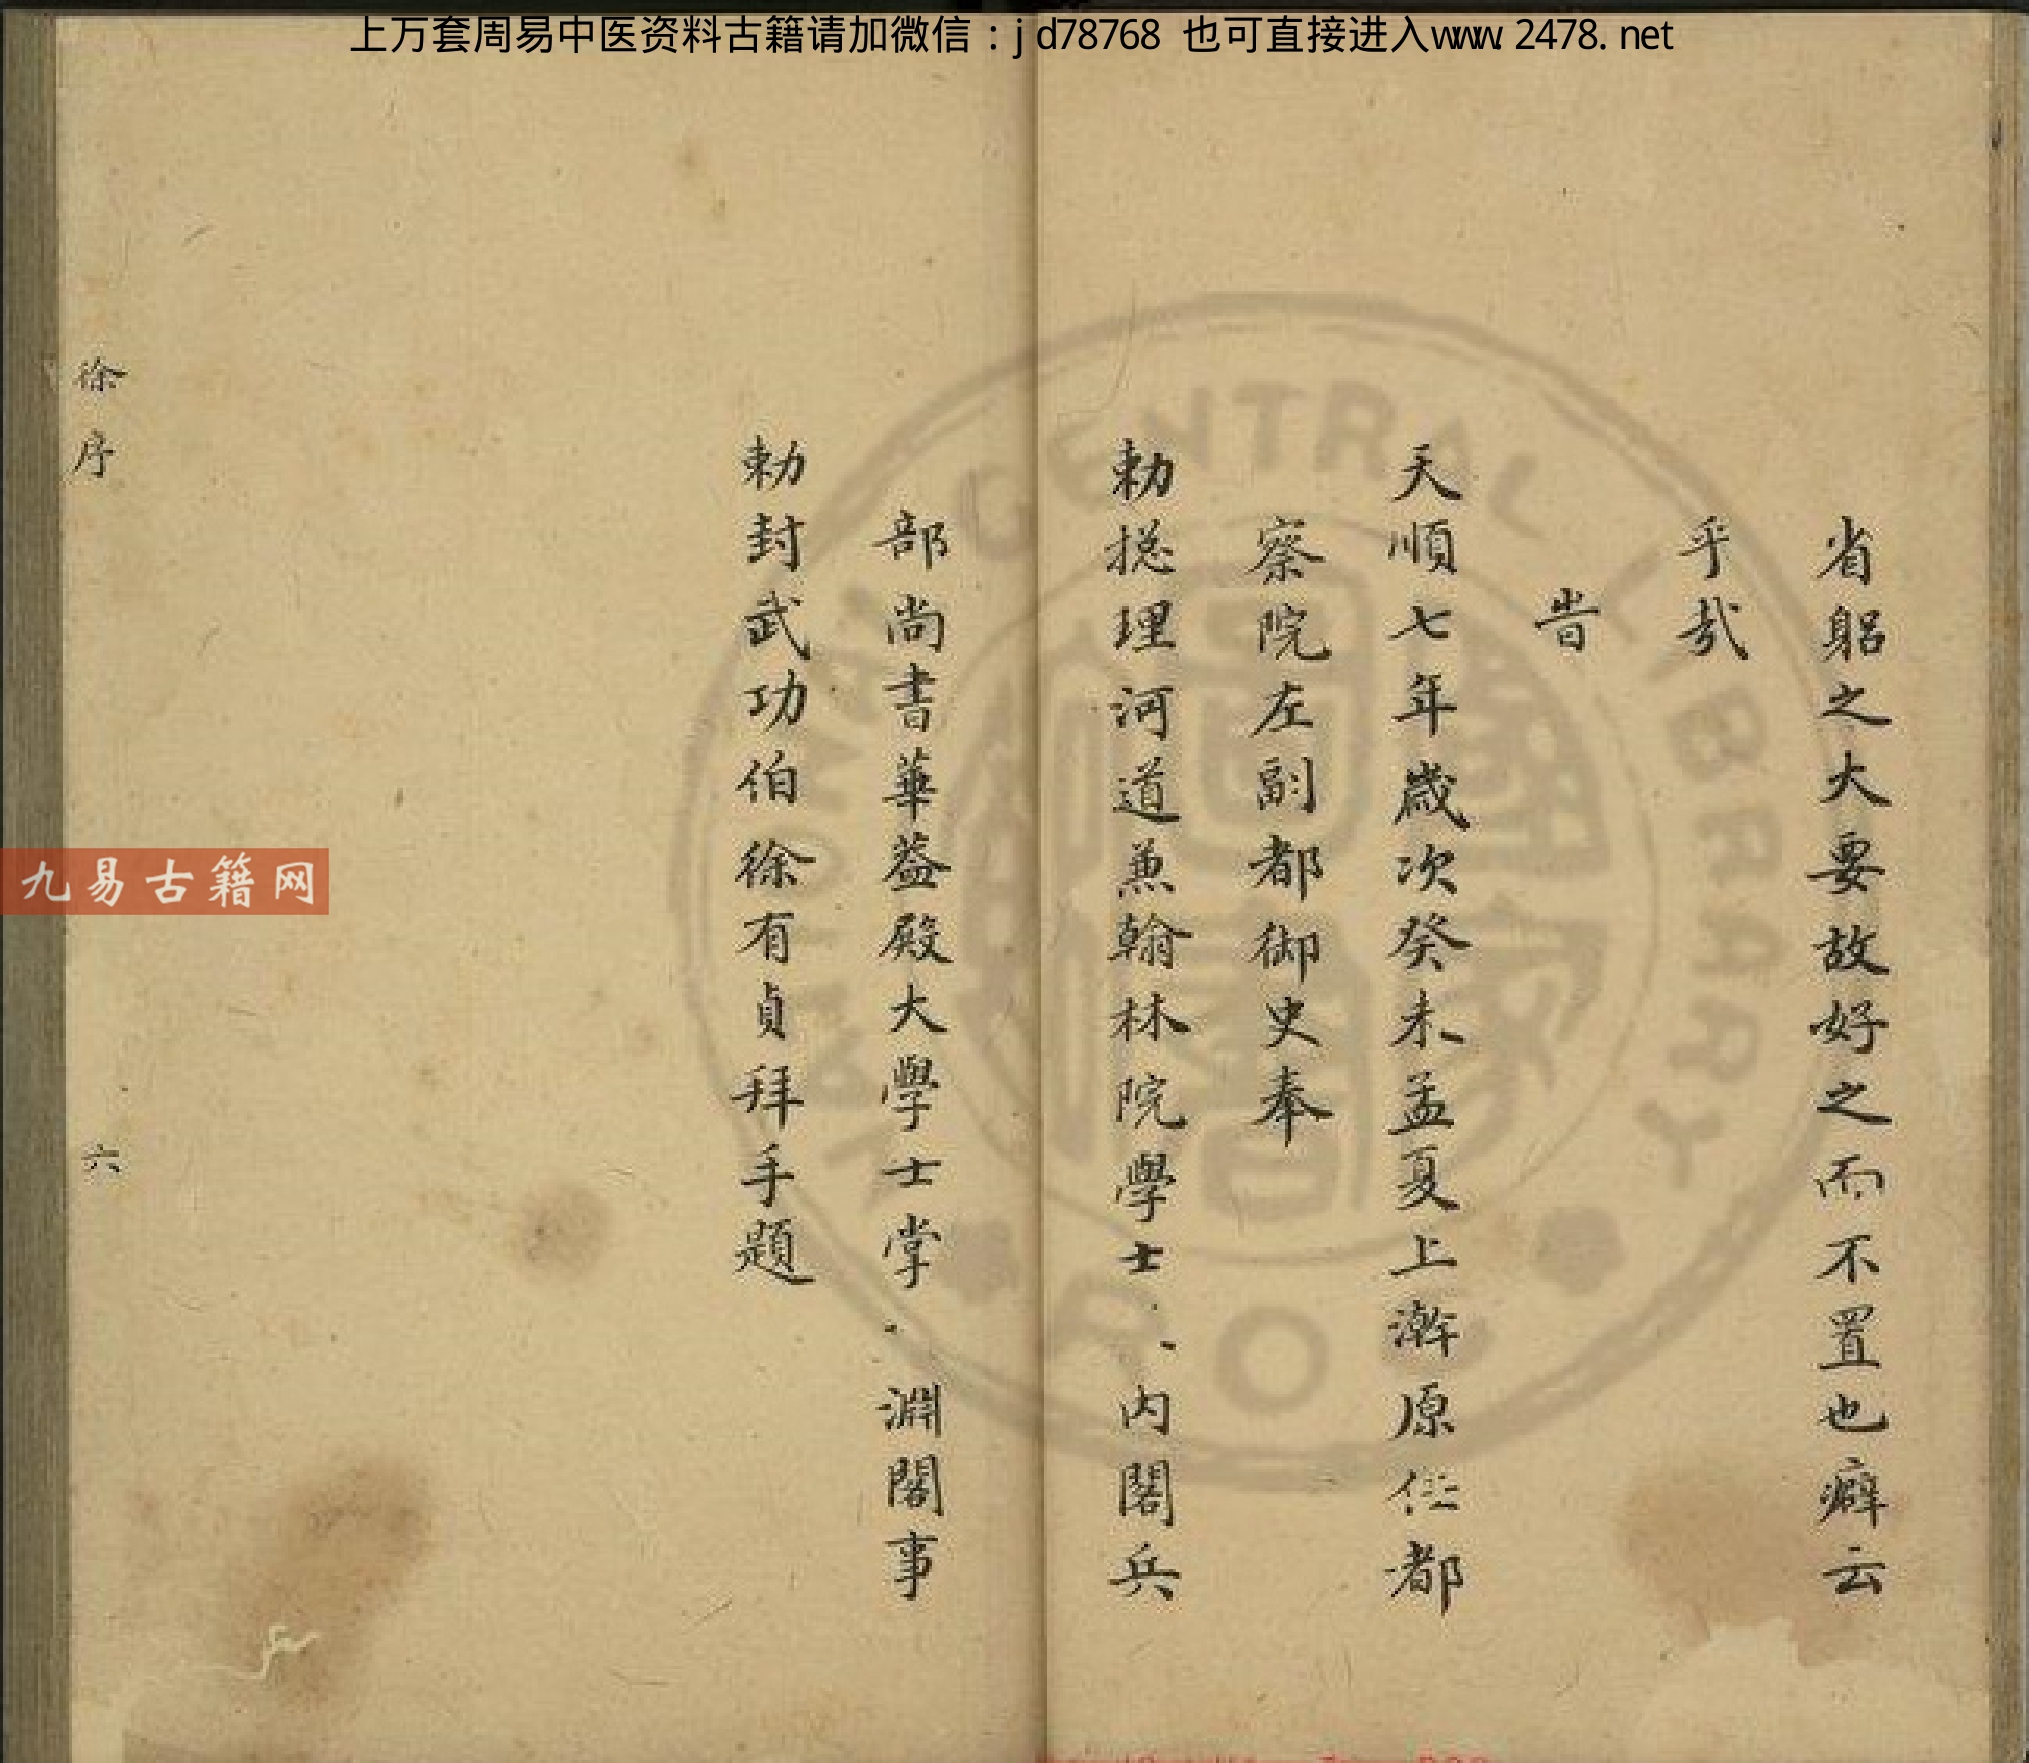 上万套周易中医资料古籍请加微信：jd78768 也可直接进入www.2478.net
省躬之大要故好之而不置也癖云
乎㢤
旹
天順七年歲次癸未孟夏上澣原任都
察院左副都御史奉
勅揔理河道兼翰林院學士 内閣兵
部尚書華葢殿大學士掌 淵閣事
勅封武功伯徐有貞拜手題
徐序
六
九易古籍网
CENTRAL LIBRARY